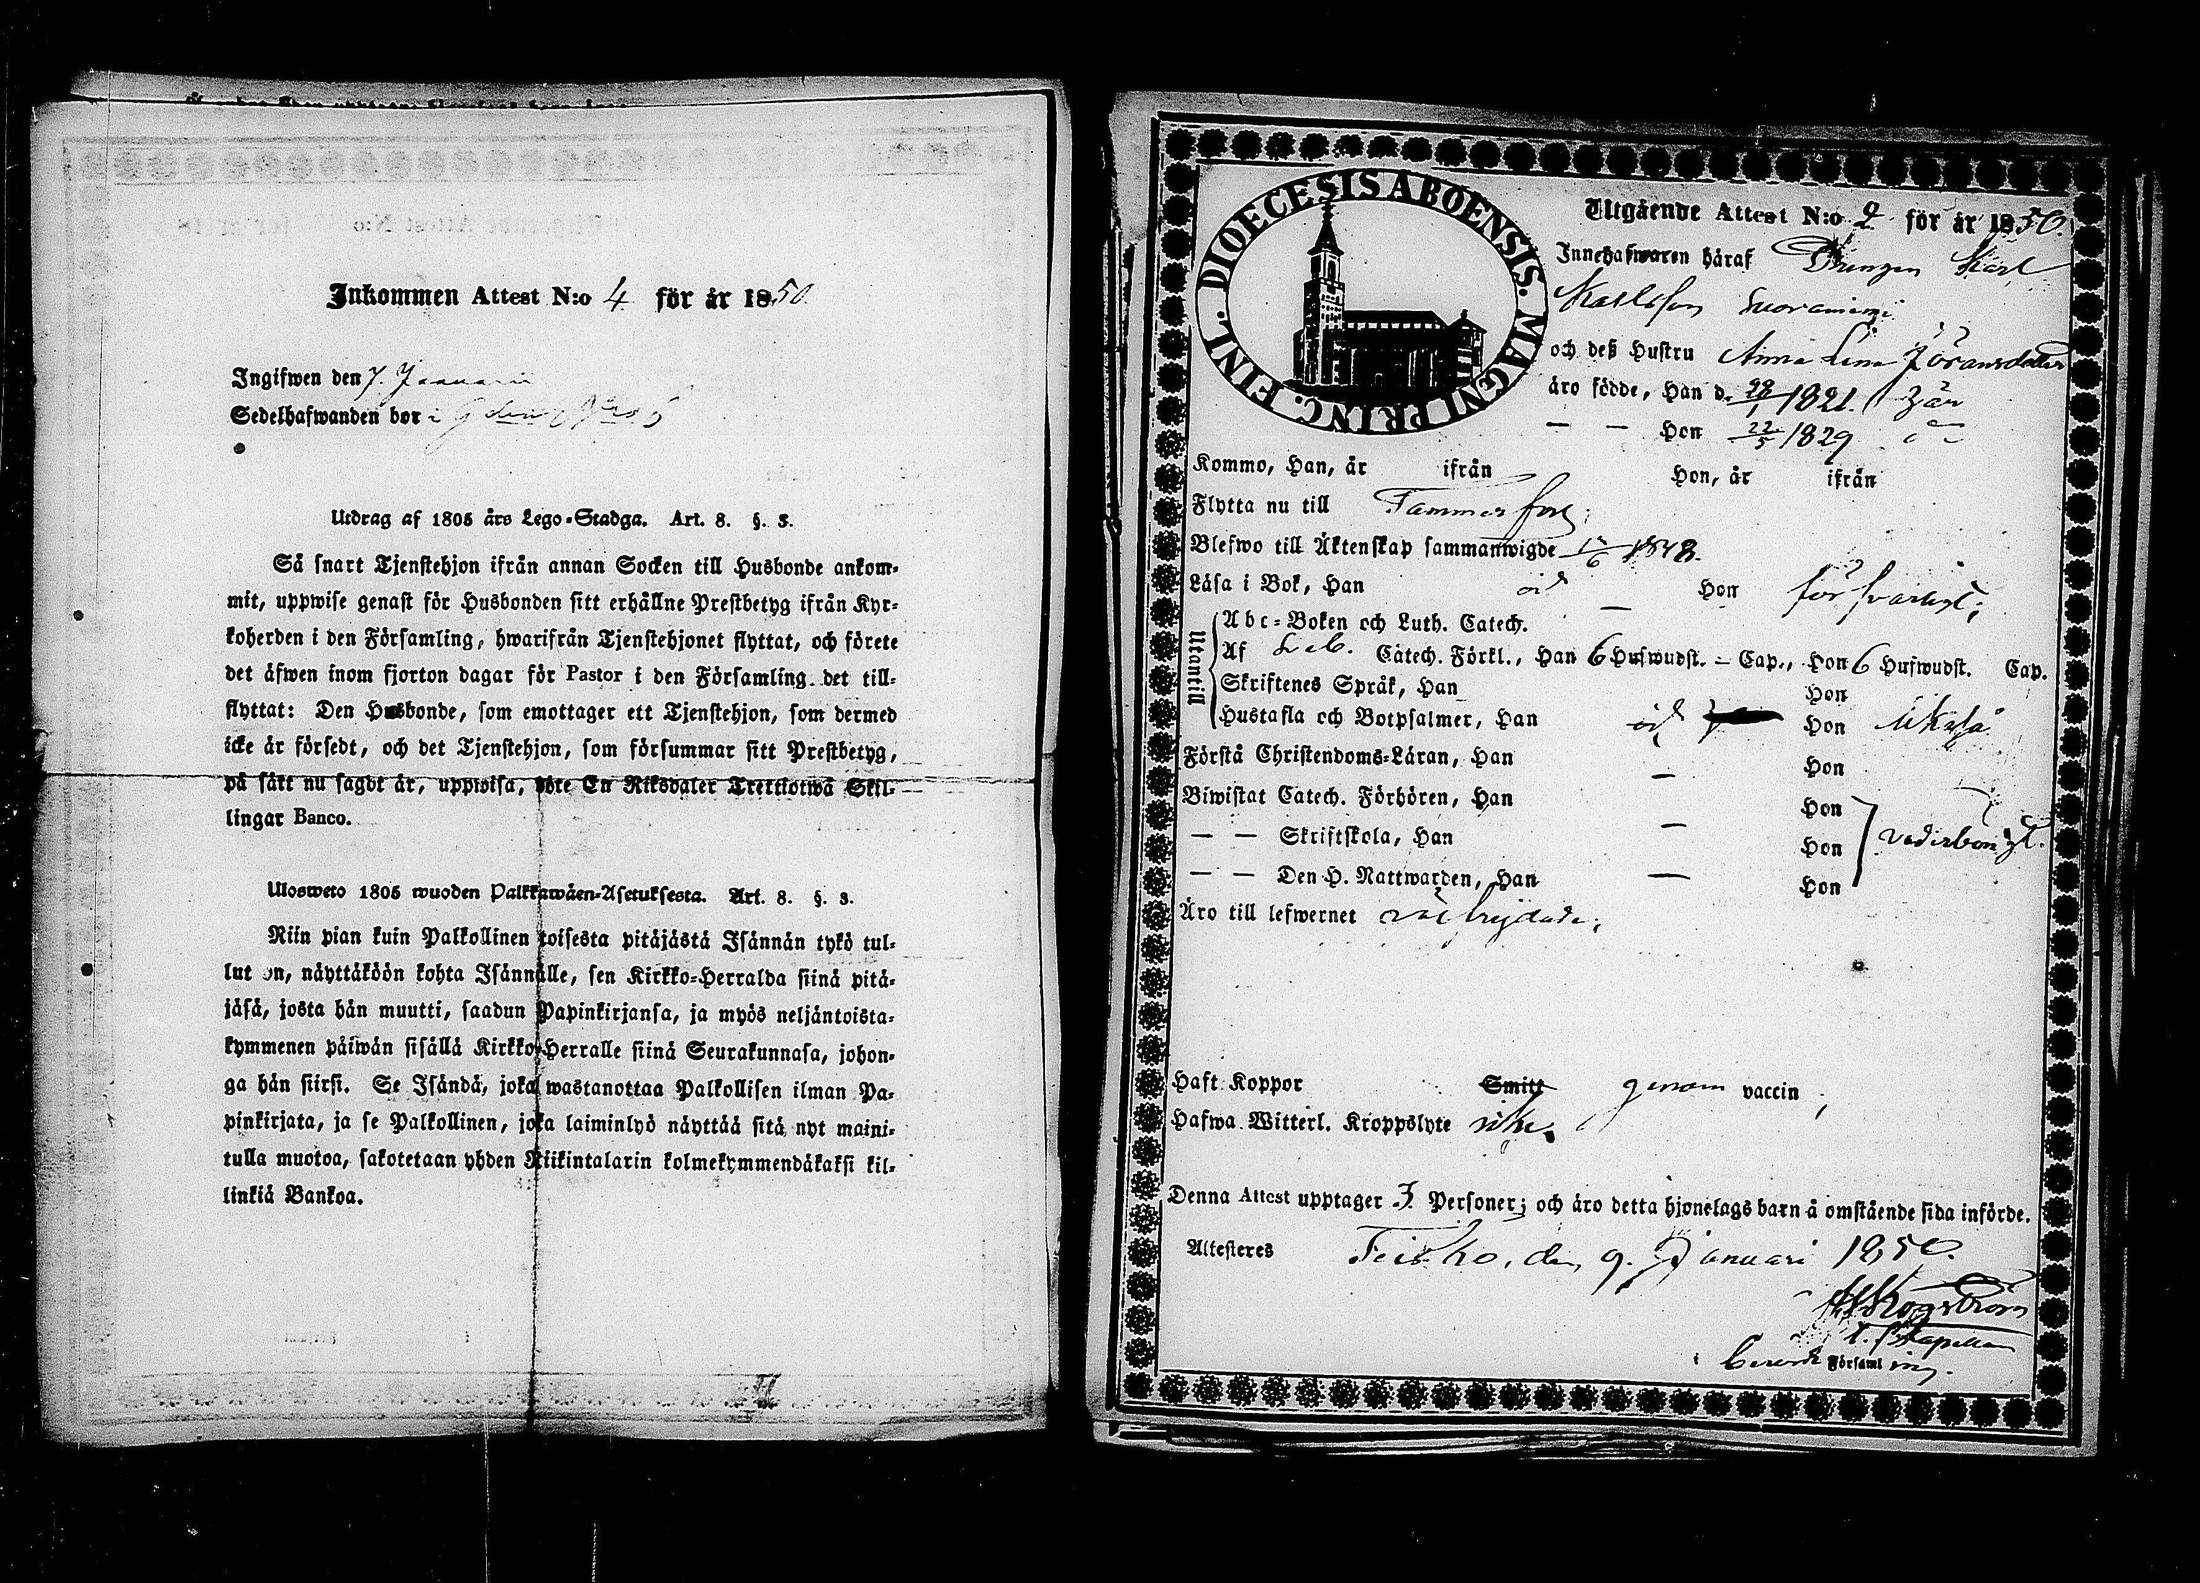 Inkommen Attest N:o 4 för år 1850.
Ingifwen den 7. Januarii
Sedelhafwanden bor i
Utdrag af 1805 års Lego-Stadga. Art. 8. §. 3.
Så snart Tjenstehjon ifrån annan Socken till Husbonde ankom-
mit, uppwise genast för Husbonden sitt erhållne Prestbetyg ifrån Kyr-
koherden i den Församling, hwarifrån Tjenstehjonet flyttat, och förete
det äfwen inom fjorton dagar för Pastor i den Församling det till-
flyttat: Den Husbonde, som emottager ett Tjenstehjon, som dermed
icke är försedt, och det Tjenstehjon, som försummar sitt Prestbetyg,
på sätt nu sagdt är, uppwisa, böte En Riksdaler Trettiotwå Skil-
lingar Banco.
Ulosweto 1805 wuoden Palkkawäen-Asetuksesta. Art. 8. §. 3.
Niin pian kuin Palkollinen toisesta pitäjästä Isännän tykö tul-
lut on, näyttäköön kohta Isännälle, sen Kirkko-Herralda siinä pitä-
jäsä, josta hän muutti, saadun Papinkirjansa, ja myös neljäntoista-
kymmenen päiwän sisällä Kirkko-Herralle siinä Seurakunnasa, johon-
ga hän siirsi. Se Isändä, joka wastanottaa Palkollisen ilman Pa-
pinkirjata, ja se Palkollinen, joka laiminlyö näyttää sitä nyt maini-
tulla muotoa, sakotetaan yhden Riikintalarin kolmekymmendäkaksi kil-
linkiä Bankoa.
DIOECESIS ABOENSIS. MAGNI PRINC. FINL.
Utgående Attest N:o 2 för år 1850.
Innehafwaren häraf Drengen Karl
Karlsson Suoraniemi
och deß Hustru Anna Lena Jöransdotter
äro födde, Han d. 28/1 1821. här
— — Hon 22/5 1829
Kommo, Han, år ifrån Hon, år ifrån
Flytta nu till Tammerfors;
Blefwo till Äktenskap sammanwigde 1848.
Läsa i Bok, Han och — Hon försvarligt;
Utantill
Abc-Boken och Luth. Catech.
Af Catech. Förkl., Han 6 Hufwudst. — Cap., Hon 6 Hufwudst. Cap.
Skriftenes Språk, Han Hon
Hustafla och Botpsalmer, Han och Hon likaså
Förstå Christendoms-Läran, Han — Hon
Biwistat Catech. Förhören, Han Hon
— — Skriftskola, Han — Hon vederbörligt.
— — Den H. Nattwarden, Han — Hon
Äro till lefwernet
Haft Koppor Smitt genom vaccin;
Hafwa Witterl. Kroppslyte icke.
Denna Attest upptager 3. Personer; och äro detta hjonelags barn å omstående sida införde.
Altesteres Teisko, den 9. Januari 1850.
Kapellan
Församl ing.